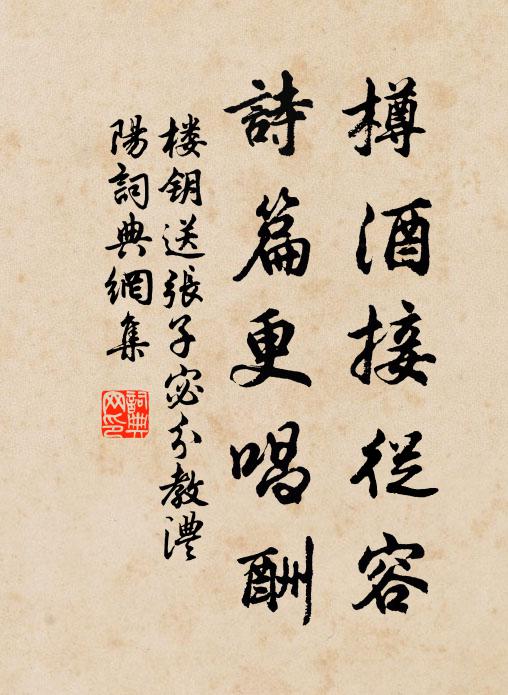 樽酒接從容
詩篇更唱酬
楼钥送張子宓分教澧
陽詞典網集
詞典
网印